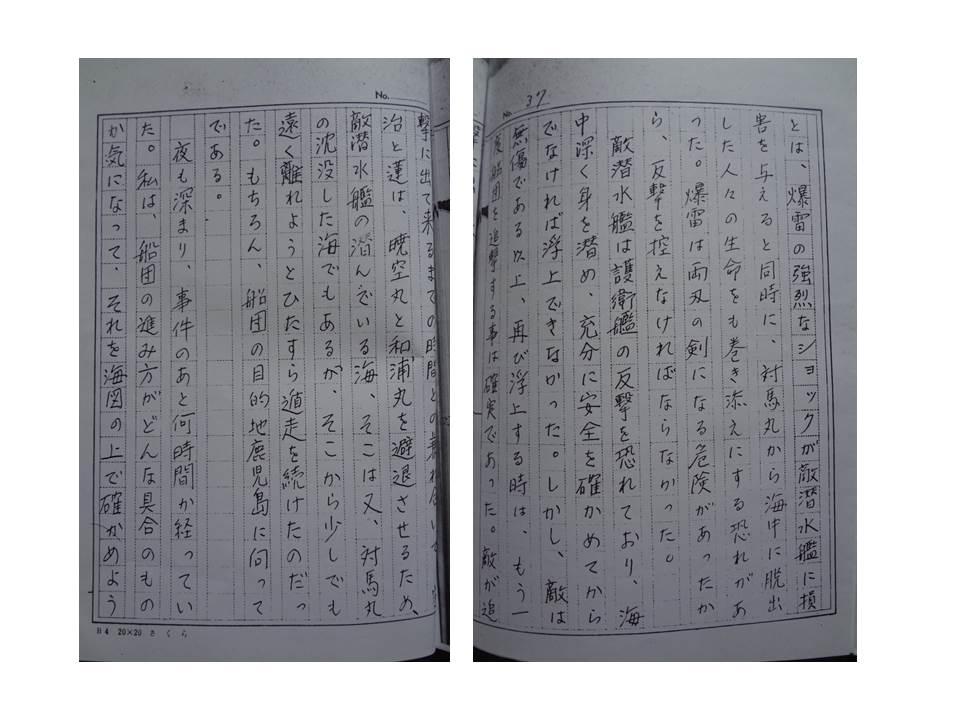 No. 37
とは、爆雷の強烈なショックが敵潜水艦に損
害を与えると同時に、対馬丸から海中に脱出
した人々の生命をも巻き添えにする恐れがあ
った。爆雷は両刃の剣になる危険があったか
ら、反撃を控えなければならなかった。
敵潜水艦は護衛艦の反撃を恐れており、海
中深く身を潜め、充分に安全を確かめてから
でなければ浮上できなかった。しかし、敵は
無傷である以上、再び浮上する時は、もう一
度船団を追撃する事は確実であった。敵が追
No.
撃に出て来るまでの時間との兼ね合いで
治と蓮は、暁空丸と和浦丸を避退させるため、
敵潜水艦の潜んでいる海、そこは又、対馬丸
の沈没した海でもあるが、そこから少しでも
遠く離れようとひたすら遁走を続けたのだっ
た。もちろん、船団の目的地鹿児島に向って
である。
夜も深まり、事件のあと何時間か経ってい
た。私は、船団の進み方がどんな具合のもの
か気になって、それを海図の上で確かめよう
B4 20×20 さくら